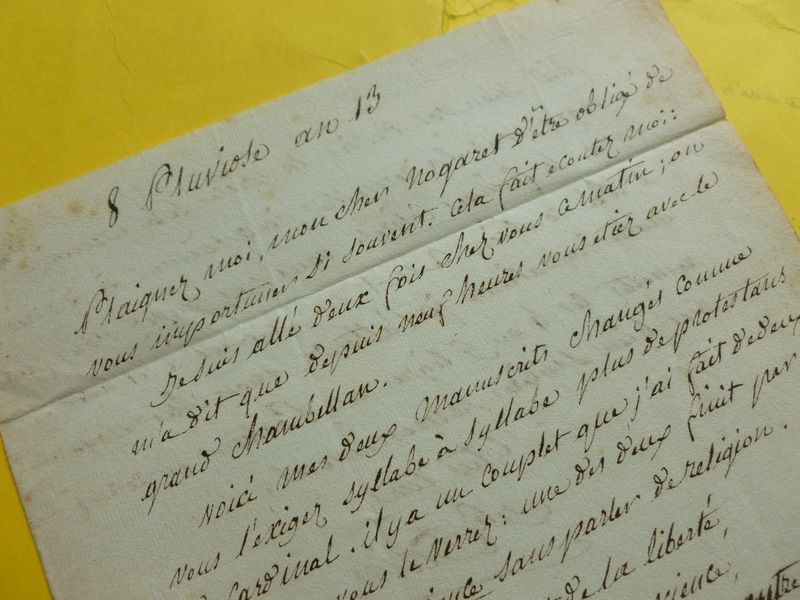 8 Pluviose an 13
Plaignez moi, mon cher nogaret d'être obligé de
vous importuner si souvent. cela fait ecoutez moi:
Je suis allé deux fois chez vous ce matin; on
m'a dit que depuis neuf heures vous etiez avec le
grand chambellan.
voici mes deux manuscrits changés comme
vous l'exigez syllabe à syllabe plus de protestans
cardinal. il y a un couplet que j'ai fait de deux
vous le verrez: une des deux finit par
sans parler de religion.
de la liberté,